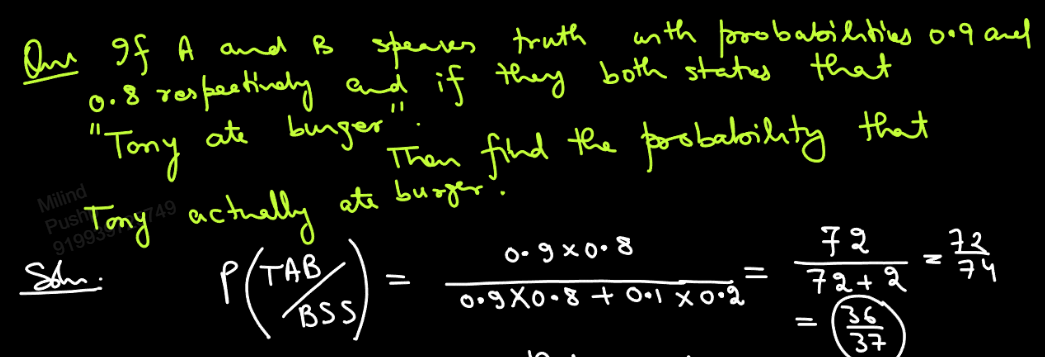 Que If A and B speaks truth with probabilities 0.9 and
0.8 respectively and if they both states that
"Tony ate burger".
Then find the probability that
Tony actually ate burger.
Milind
919939 749
Soln: P(TAB/BSS) = 0.9 × 0.8 / 0.9 × 0.8 + 0.1 × 0.2 = 72 / 72 + 2 = 72/74
= 36/37